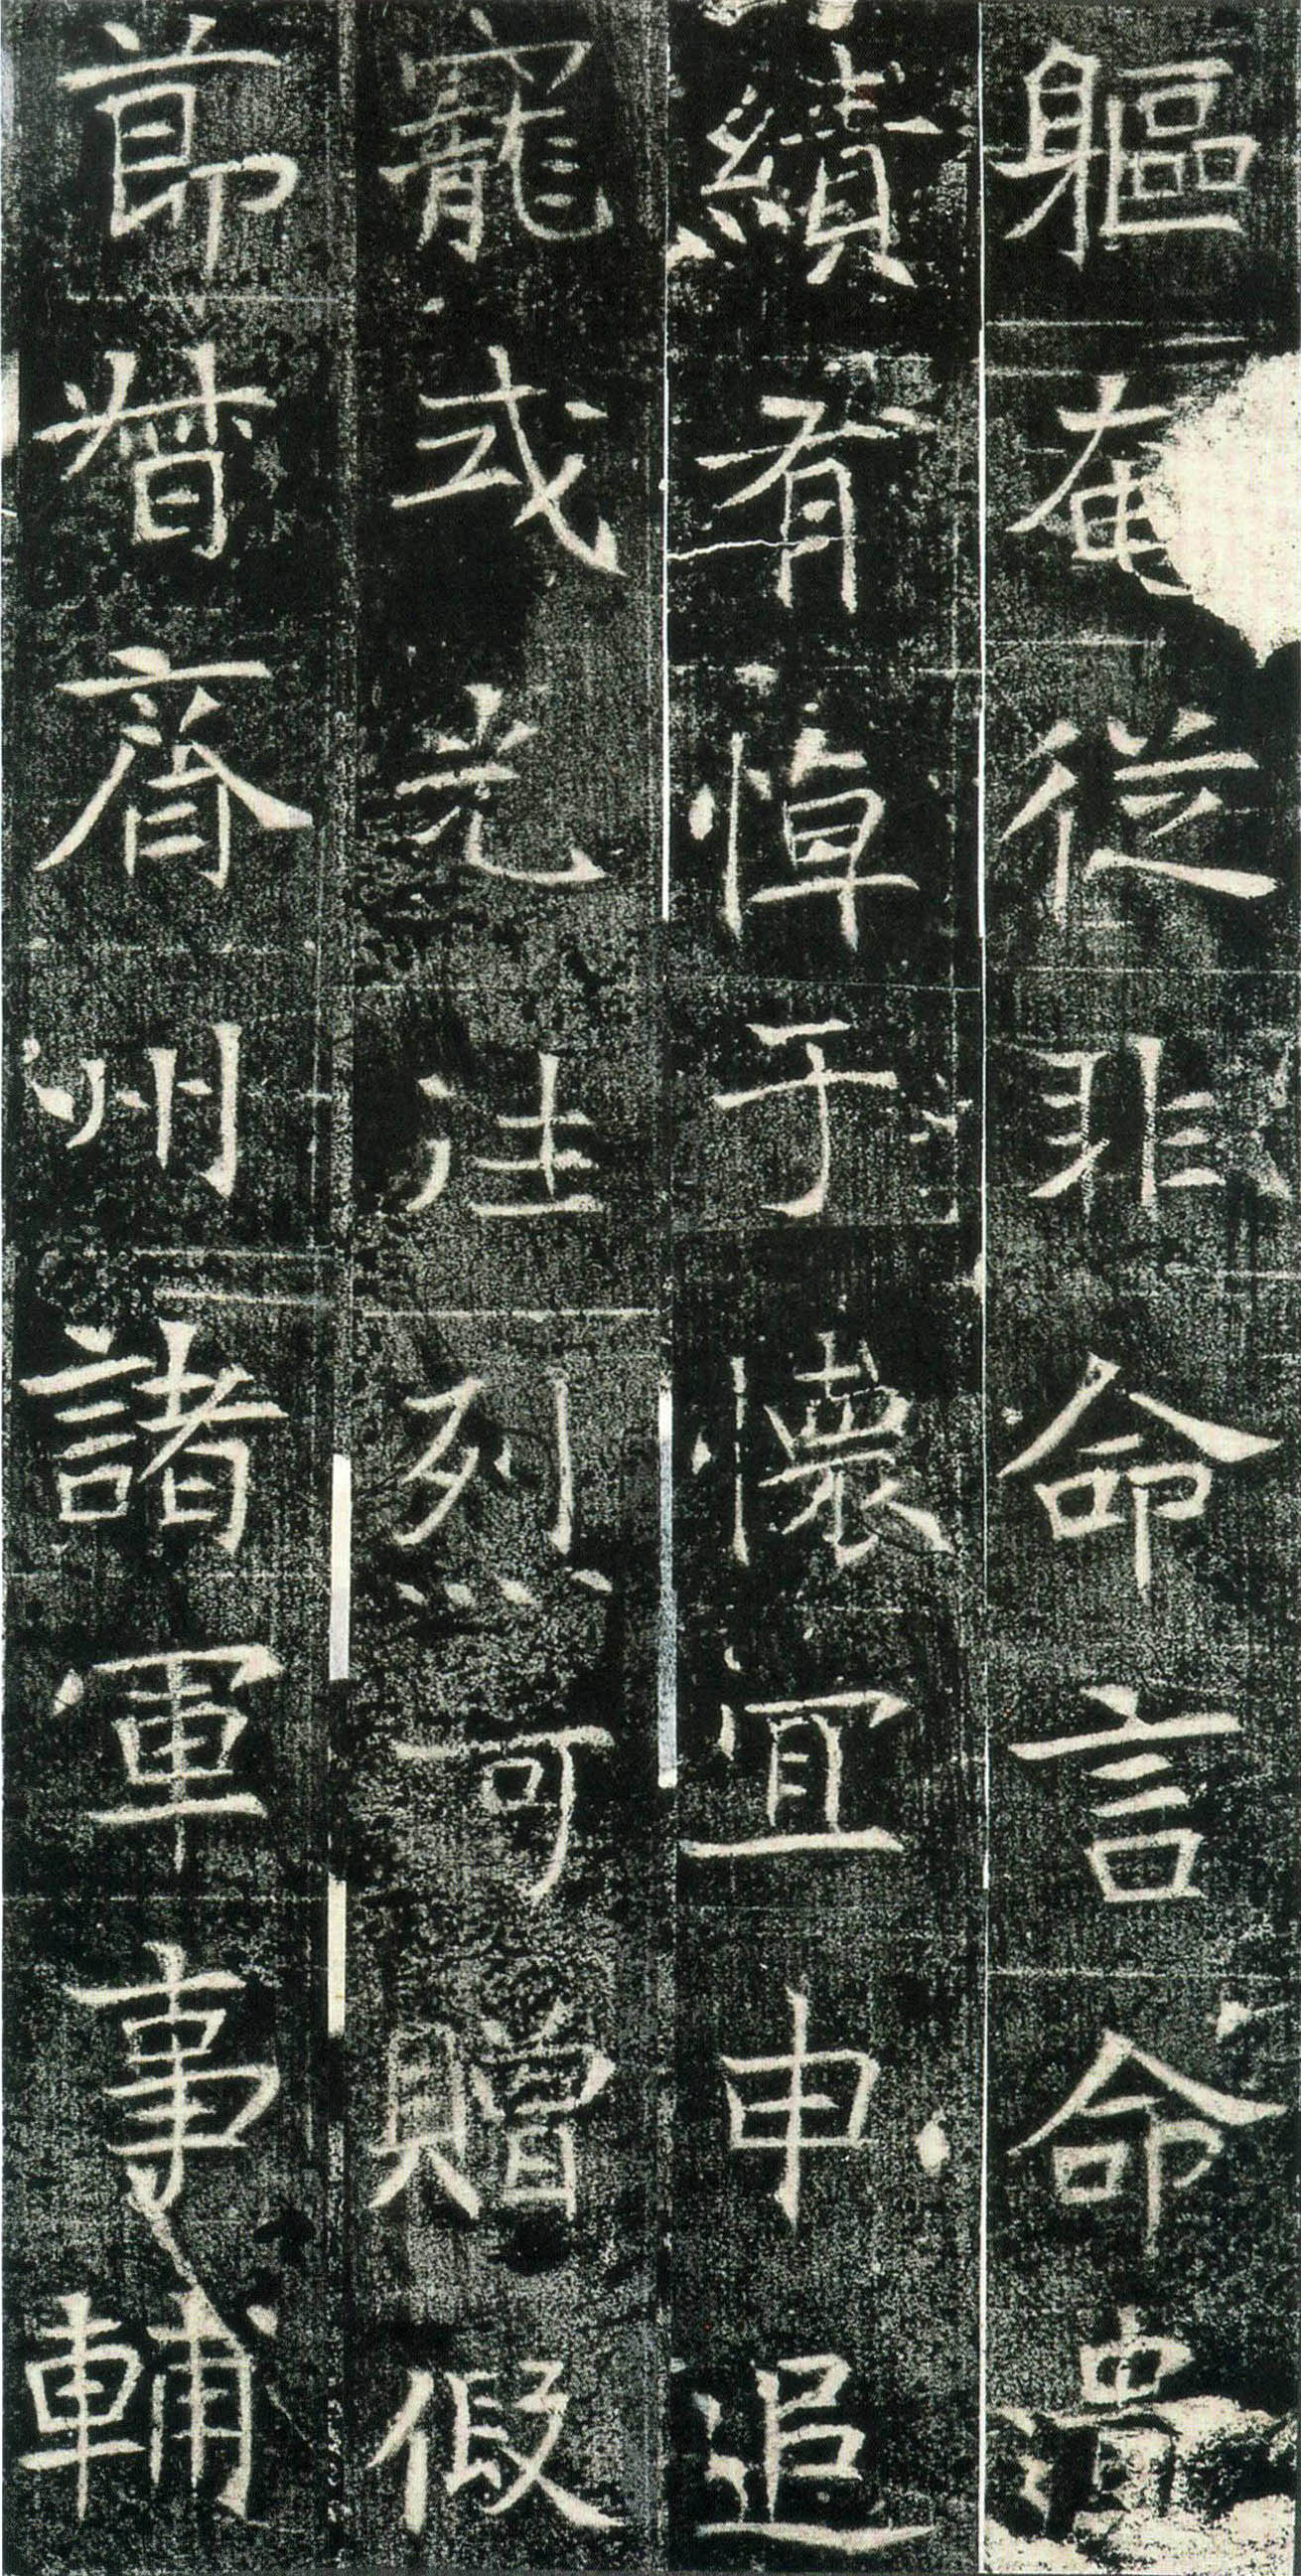 軀奄從非命言命遺
績有悼于懷宜申追
寵或光往烈可贈假
節督齊州諸軍事輔